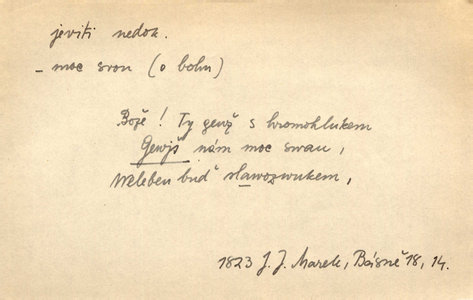 jeviti nedok.
– moc svou (o bohu)
Bože! Ty genž s hromohlukem
Gewjš nám moc swau,
Weleben buď slawozwukem,
1823 J. J. Marek, Básně 18, 14.